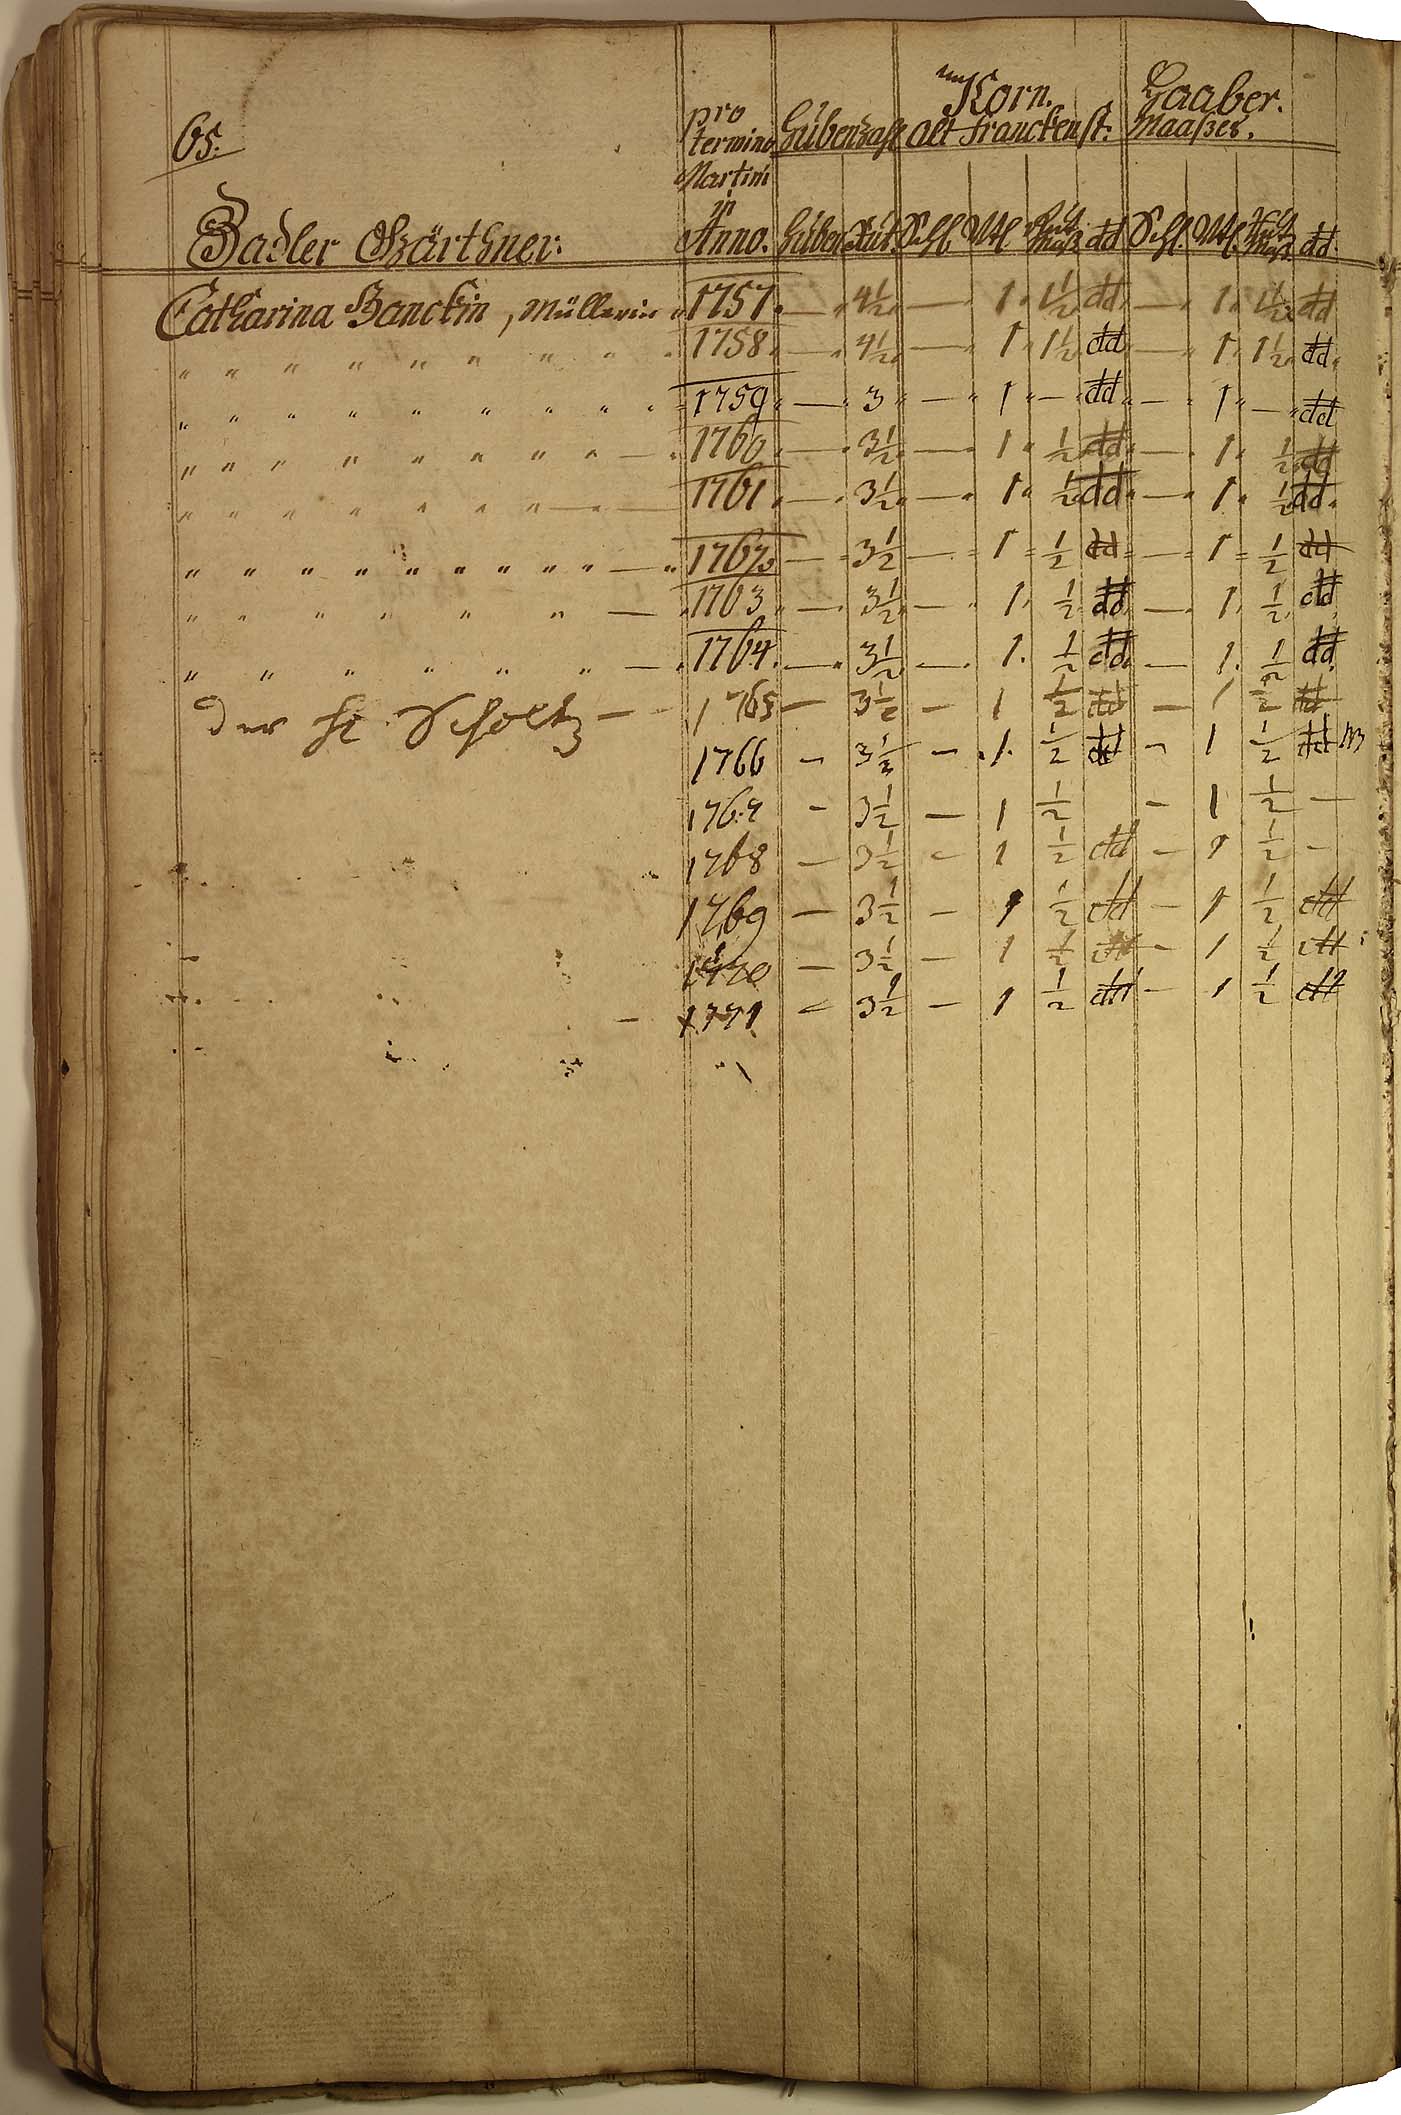 65.
pro termino Martini in Anno.
Hübenzahl
Korn. Haaber.
alt franckenst: Maaßes.
Zadler Gärthner.
Hüben Rut. Schl Vtl dd Schl. Vtl. dd
Catharina Banckin, Müllerin " 1757. — " 4½ — " 1 " 1½ dd — " 1 " 1½ dd
" " " " " " " " " 1758. — " 4½ — " 1 " 1½ dd — " 1 " 1½ dd.
" " " " " " " " " 1759 " — " 3 " — " 1 " — " dd " — " 1 " — " dd
" " " " " " " " — " 1760 " — " 3½ — " 1 " ½ dd " — " 1 " ½ dd
" " " " " " " " — — 1761 " — " 3½ — " 1 " ½ dd " — " 1 " ½ dd.
" " " " " " " " " " — " 1762 — " 3½ — " 1 " ½ dd " — " 1 " ½ dd
" " " " " " — " 1763 " — " 3½ — " 1 " ½ dd — " 1 " ½ dd
" " " " " " — " 1764. — " 3½ — " 1. ½ dd — 1. ½ dd
der H Scholtz — 1765 — 3½ — 1 ½ dd — 1 ½ dd
1766 — 3½ — 1. ½ dd — 1 ½ dd
1767 — 3½ — 1 ½ — 1 ½ —
1768 — 3½ — 1 ½ dd — 1 ½ —
1769 — 3½ — 1 ½ dd — 1 ½ dd
1770 — 3½ — 1 ½ dd — 1 ½ dd
— 1771 — 3½ — 1 ½ dd — 1 ½ dd